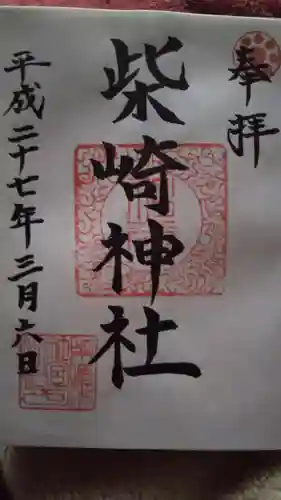 奉拝
柴崎神社
平成二十七年三月六日